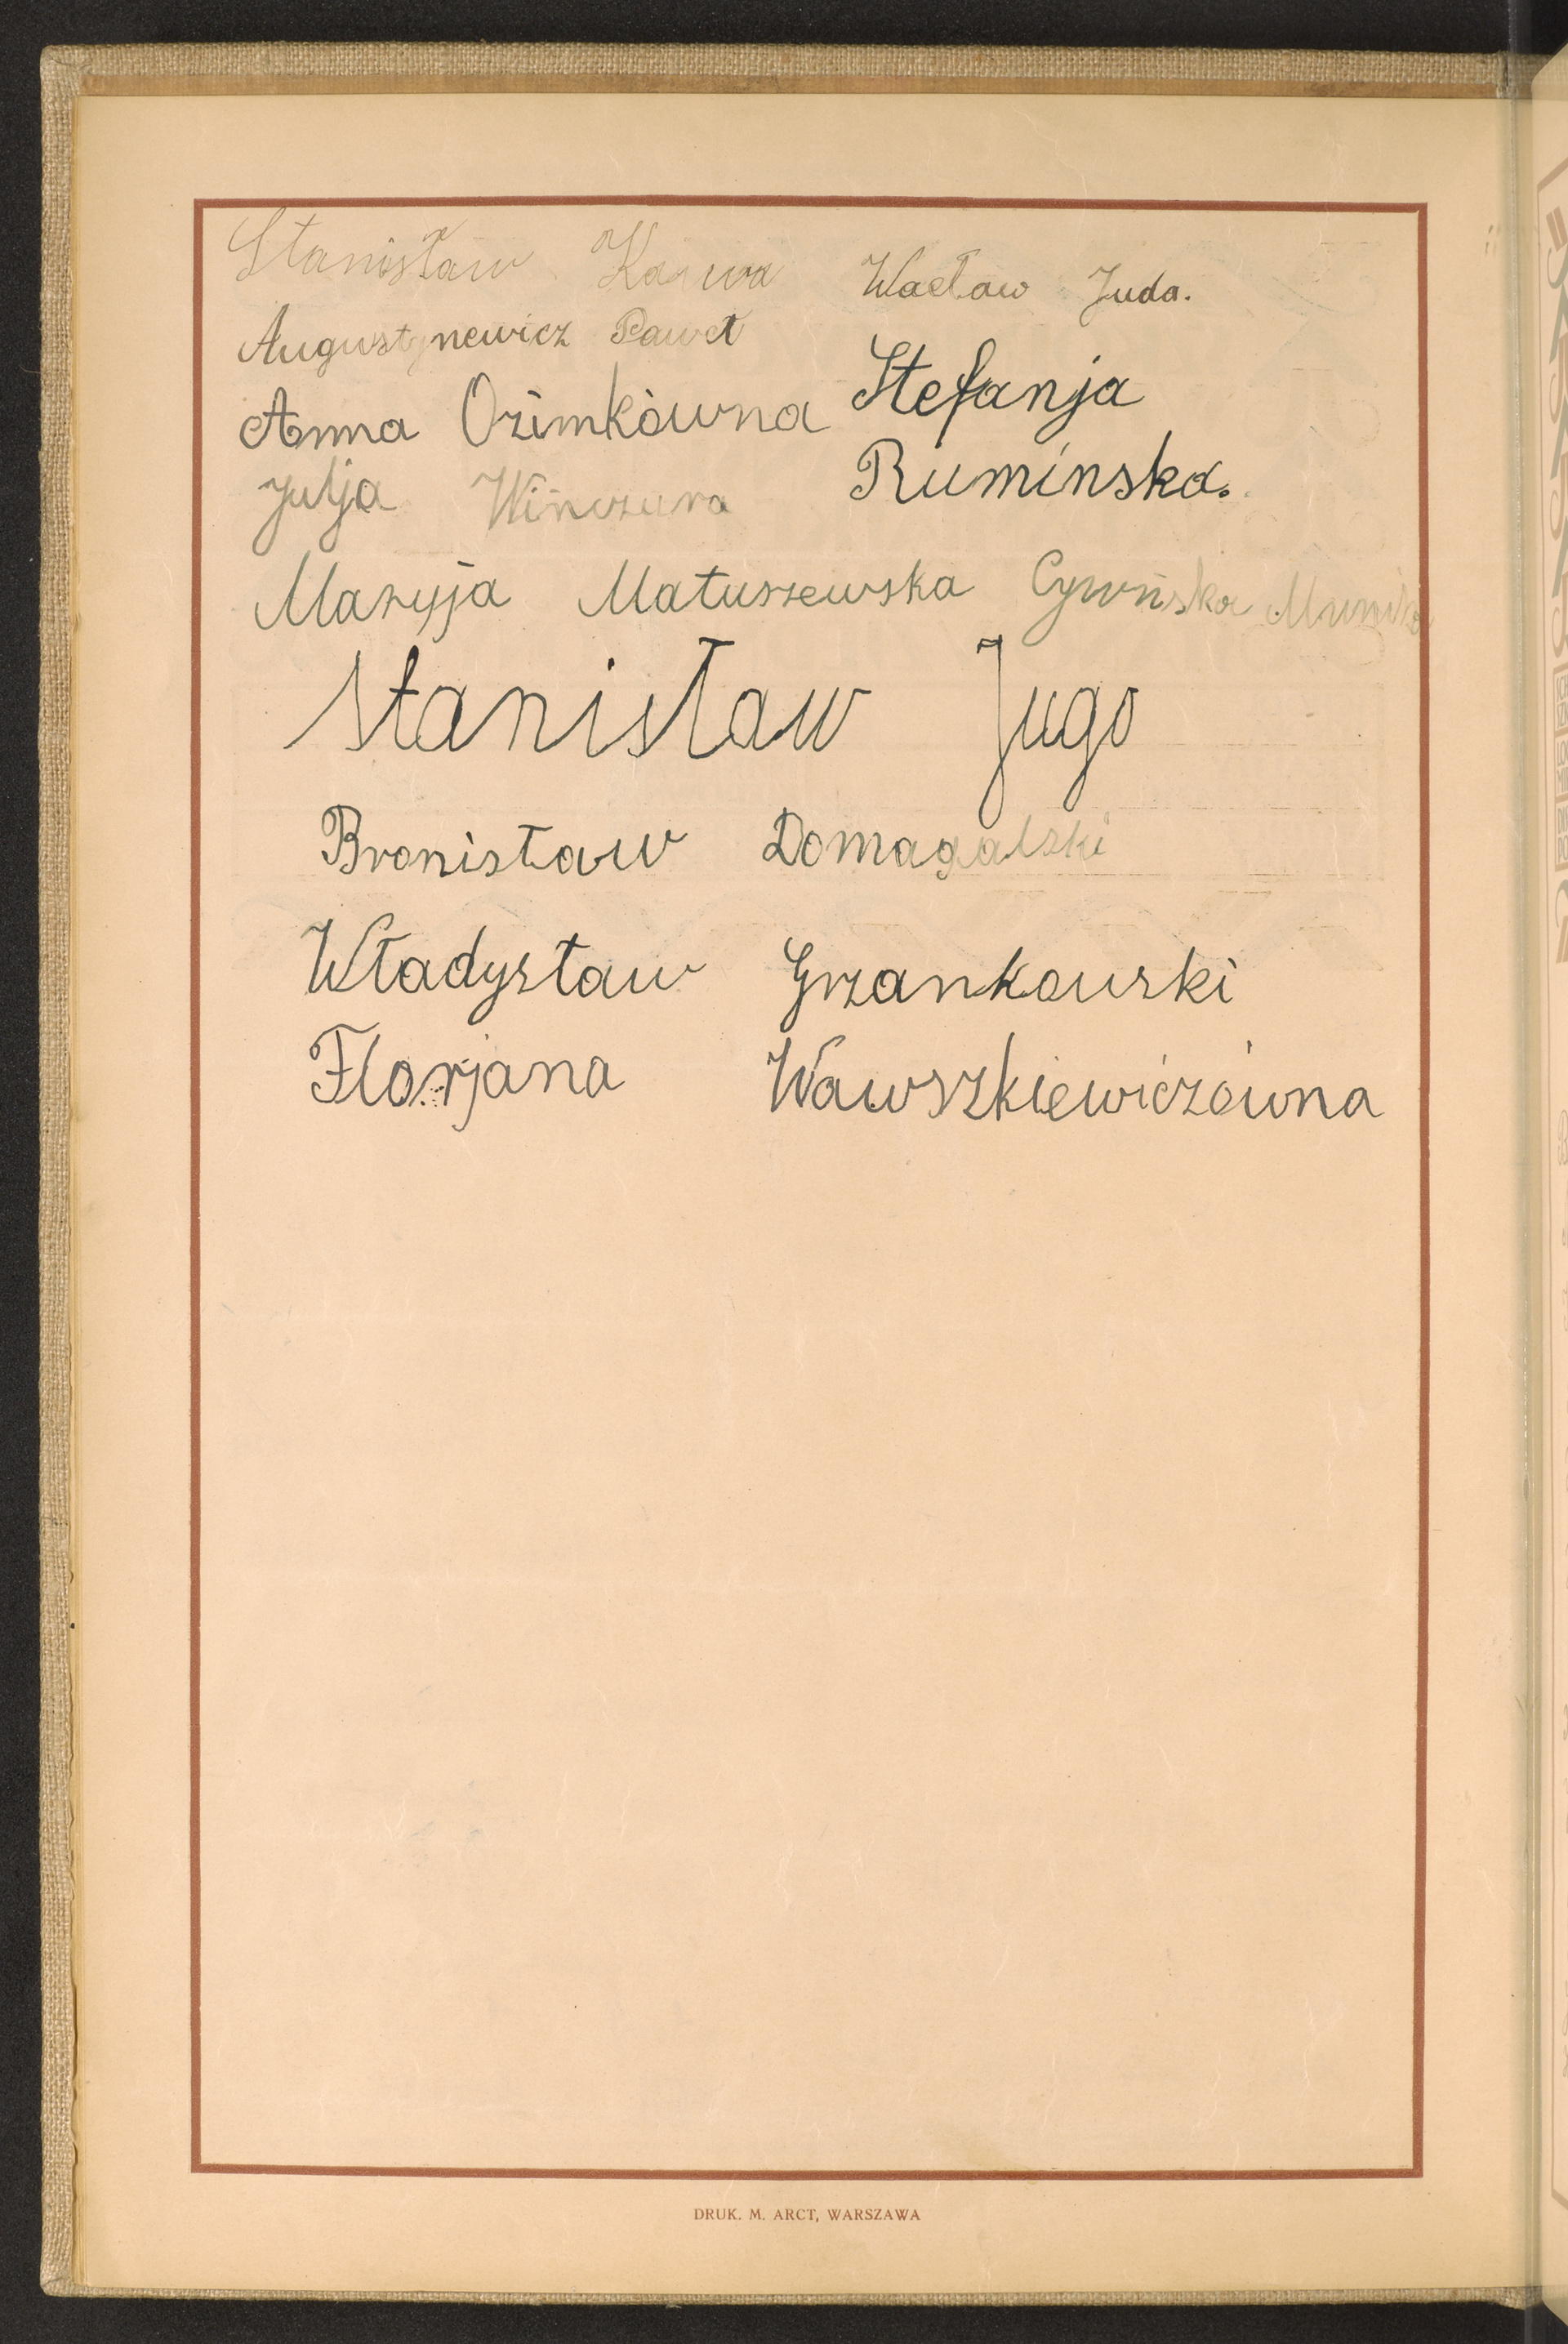 Stanisław Kawa
Wacław Juda.
Augustynewicz Paweł
Anna Ozimkówna
Stefanja
Rumińska.
Julja Winczura
Maryja Matuszewska
Cywińska
Stanisław Jugo
Bronisław Domagalski
Władysław Grzankowski
Florjana Wawszkiewiczówna
DRUK. M. ARCT, WARSZAWA